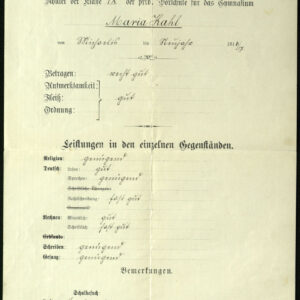 Schüler der Klasse der priv. Vorschule für das Gymnasium
Maria Kahl
von Michaelis bis Neujahr 191
Betragen: recht gut
Aufmerksamkeit:
Fleiß: gut
Ordnung:
Leistungen in den einzelnen Gegenständen.
Religion: genügend
Deutsch: Lesen: gut
Sprechen: genügend
Schriftliche Übungen:
Rechtschreibung: fast gut
Rechnen: Mündlich: gut
Schriftlich: fast gut
Erdkunde:
Schreiben: genügend
Gesang: genügend
Bemerkungen.
Schulbesuch